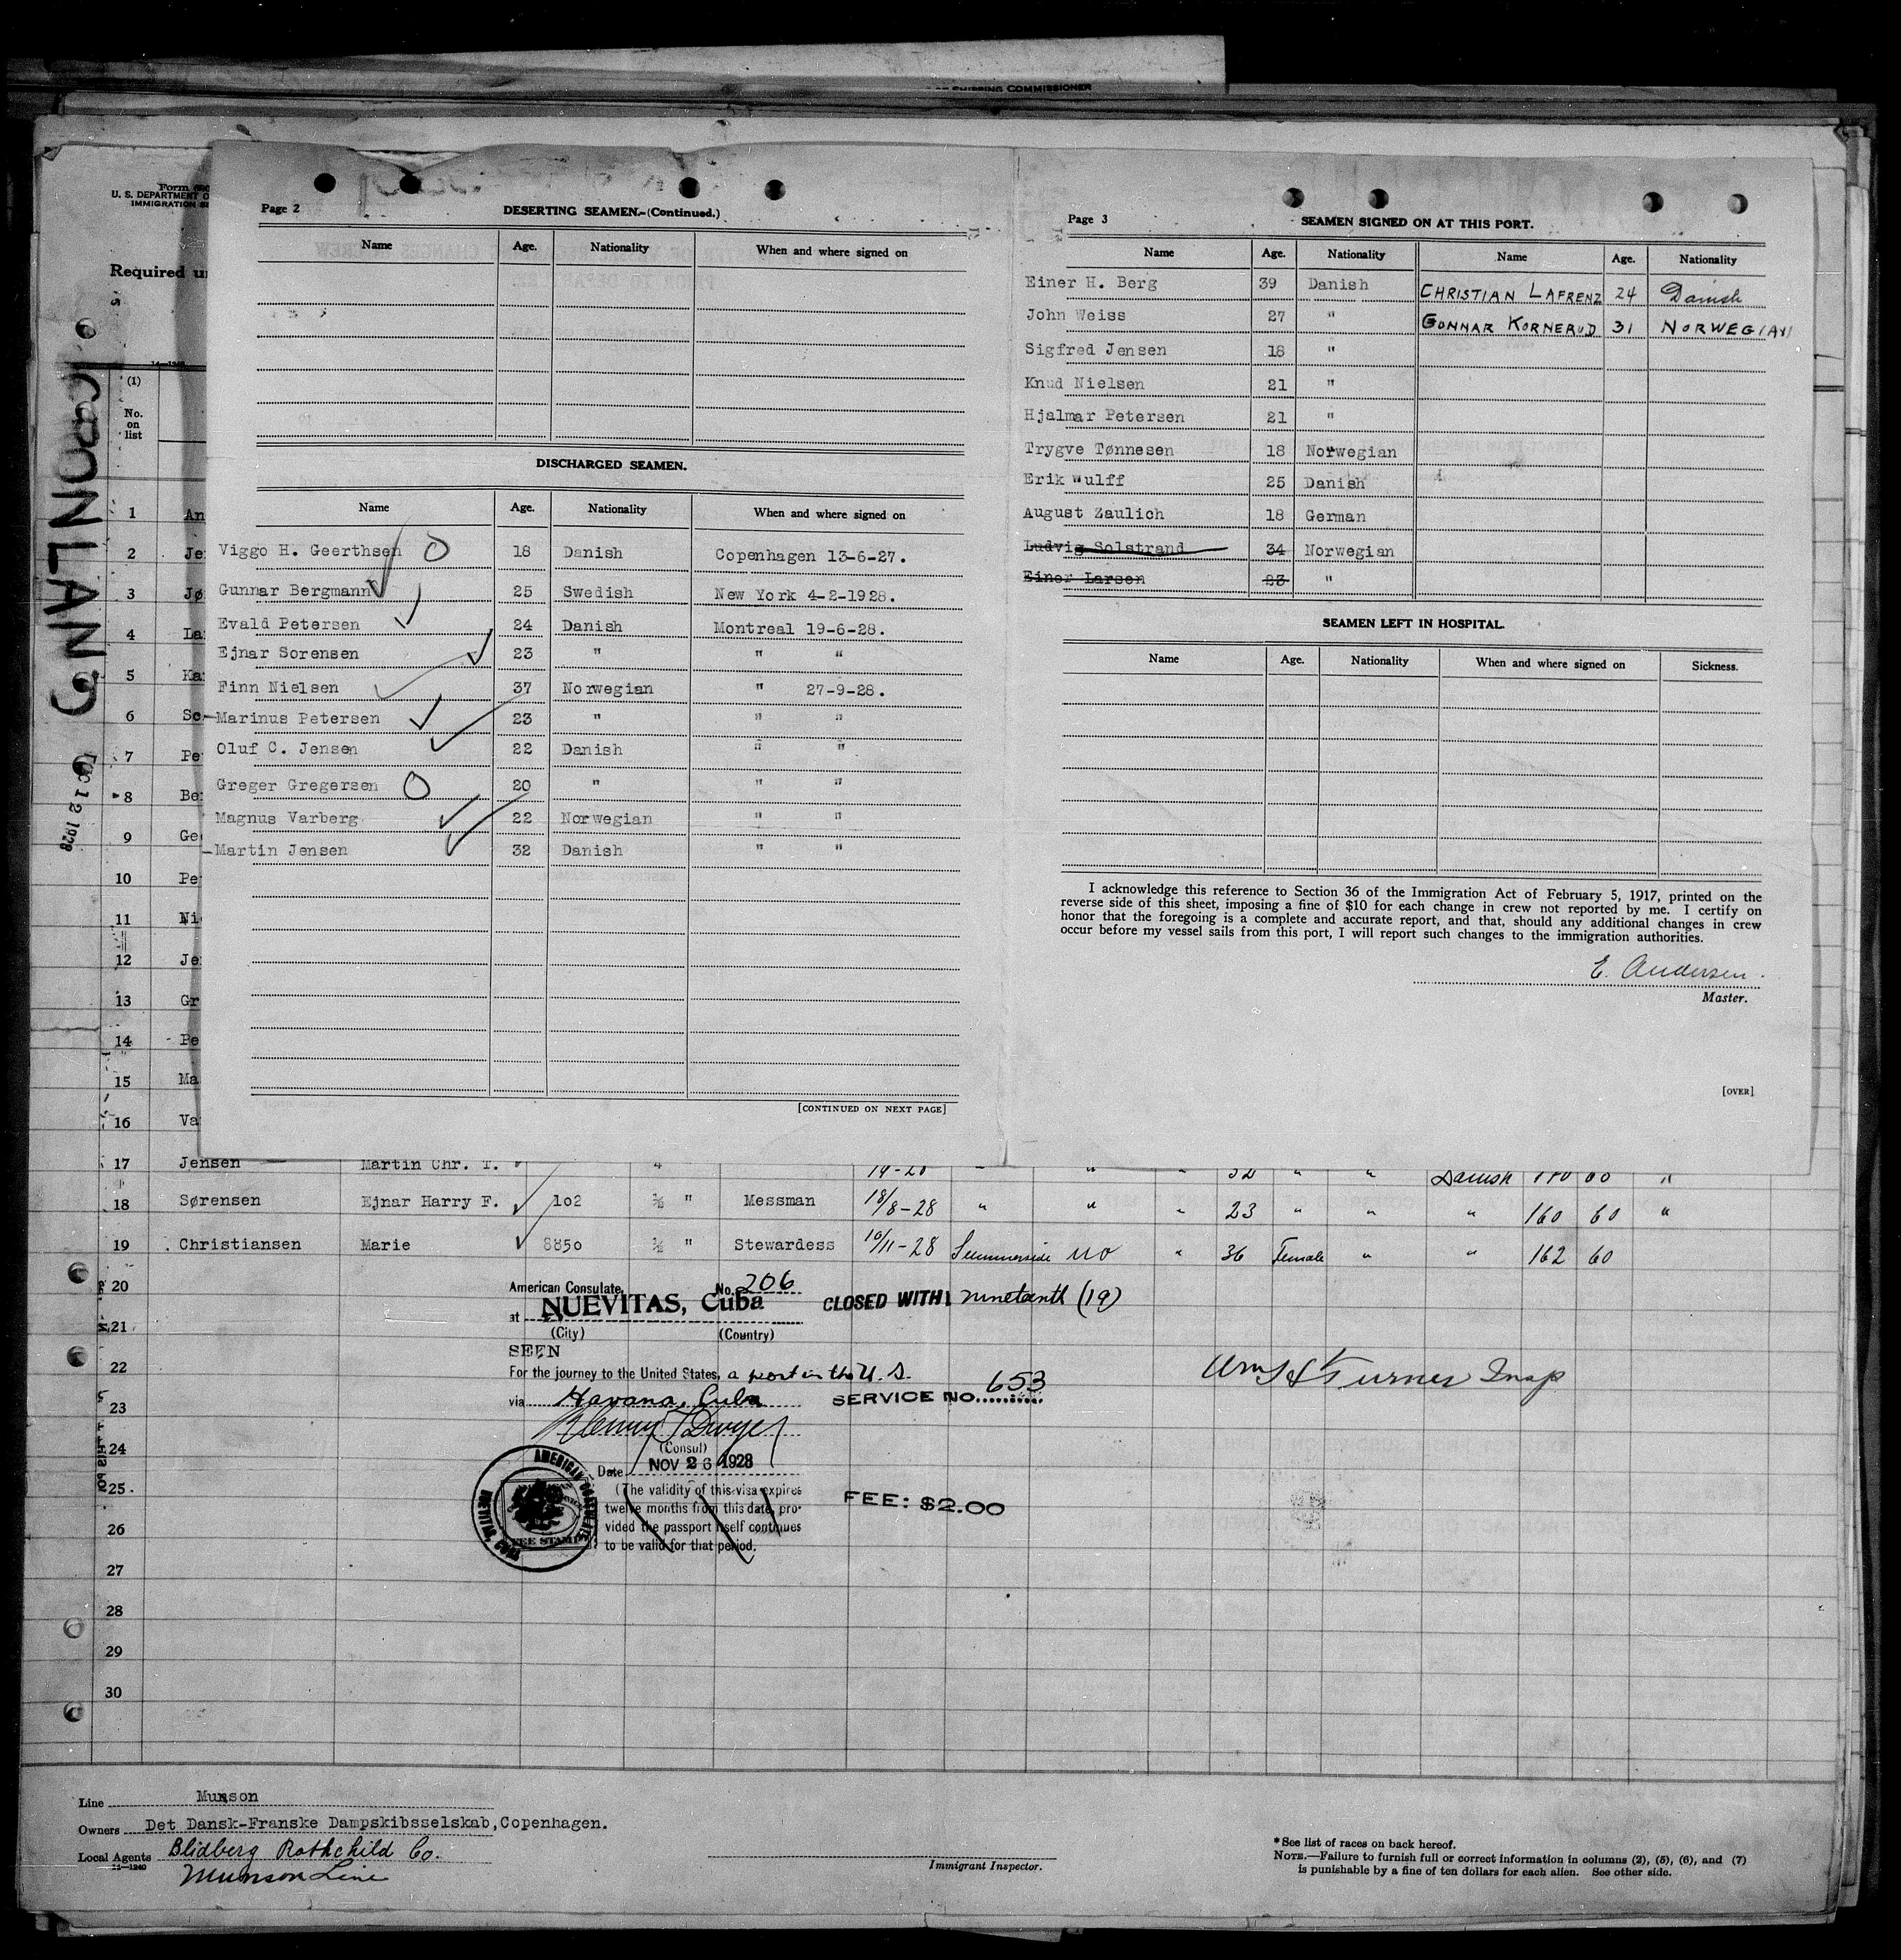 SHIPPING COMMISSIONER
Form
U. S. DEPARTMENT O
IMMIGRATION SE
Required un
14-1240
(1)
No.
on
list
DEC 12 1928
Page 2
DESERTING SEAMEN.-(Continued.)
Name Age. Nationality When and where signed on
DISCHARGED SEAMEN.
Name Age. Nationality When and where signed on
Viggo H. Geerthsen O 18 Danish Copenhagen 13-6-27.
Gunnar Bergmann 25 Swedish New York 4-2-1928.
Evald Petersen 24 Danish Montreal 19-6-28.
Ejnar Sorensen 23 " " "
Finn Nielsen 37 Norwegian " 27-9-28.
Marinus Petersen 23 " " "
Oluf C. Jensen 22 Danish " "
Greger Gregersen O 20 " " "
Magnus Varberg 22 Norwegian " "
Martin Jensen 32 Danish " "
[CONTINUED ON NEXT PAGE]
Page 3
SEAMEN SIGNED ON AT THIS PORT.
Name Age. Nationality Name Age. Nationality
Einer H. Berg 39 Danish CHRISTIAN LAFRENZ 24 Danish
John Weiss 27 " GONNAR KORNERUD 31 NORWEGIAN
Sigfred Jensen 18 "
Knud Nielsen 21 "
Hjalmar Petersen 21 "
Trygve Tønnesen 18 Norwegian
Erik Wulff 25 Danish
August Zaulich 18 German
Ludvig Solstrand 34 Norwegian
Einer Larsen 23 "
SEAMEN LEFT IN HOSPITAL.
Name Age. Nationality When and where signed on Sickness.
I acknowledge this reference to Section 36 of the Immigration Act of February 5, 1917, printed on the
reverse side of this sheet, imposing a fine of $10 for each change in crew not reported by me. I certify on
honor that the foregoing is a complete and accurate report, and that, should any additional changes in crew
occur before my vessel sails from this port, I will report such changes to the immigration authorities.
E. Andersen.
Master.
[OVER]
1 An
2 Je
3 Jø
4 La
5 Ka
6 Sc
7 Pe
8 Be
9 Ge
10 Pe
11 Ni
12 Je
13 Gr
14 Pe
15 Ma
16 Va
17 Jensen Martin Chr. T. 32 " " Danish
18 Sørensen Ejnar Harry F. 102 ½ " Messman 18/8-28 " " " 23 " " " 160 60 "
19 Christiansen Marie 8850 ½ " Stewardess 10/11-28 Summerside no " 36 Female " " 162 60
20
21
22
23
24
25
26
27
28
29
30
American Consulate, No. 206
at NUEVITAS, Cuba
(City) (Country)
CLOSED WITH nineteenth (19)
SEEN
For the journey to the United States, a port in the U. S.
via Havana, Cuba
SERVICE NO. 653
(Consul)
Date NOV 26 1928
(The validity of this visa expires
twelve months from this date, pro-
vided the passport itself continues
to be valid for that period.
AMERICAN CONSULATE
NUEVITAS, CUBA
FEE STAMP
FEE: $2.00
Turner Insp
Line Munson
Owners Det Dansk-Franske Dampskibsselskab, Copenhagen.
Local Agents Blidberg Rothchild Co.
14-1240
Munson Line
Immigrant Inspector.
* See list of races on back hereof.
NOTE.—Failure to furnish full or correct information in columns (2), (5), (6), and (7)
is punishable by a fine of ten dollars for each alien. See other side.